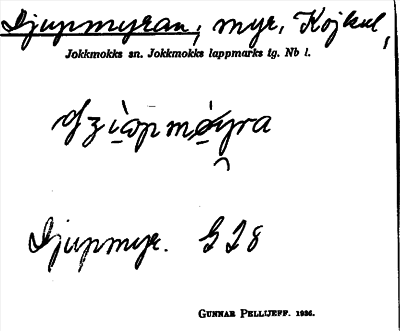 Djupmyran, myr, Kojkul,
Jokkmokks sn. Jokkmokks lappmarks tg. Nb l.
Djupmyr. G I 8
GUNNAR PELLIJEFF. 1936.